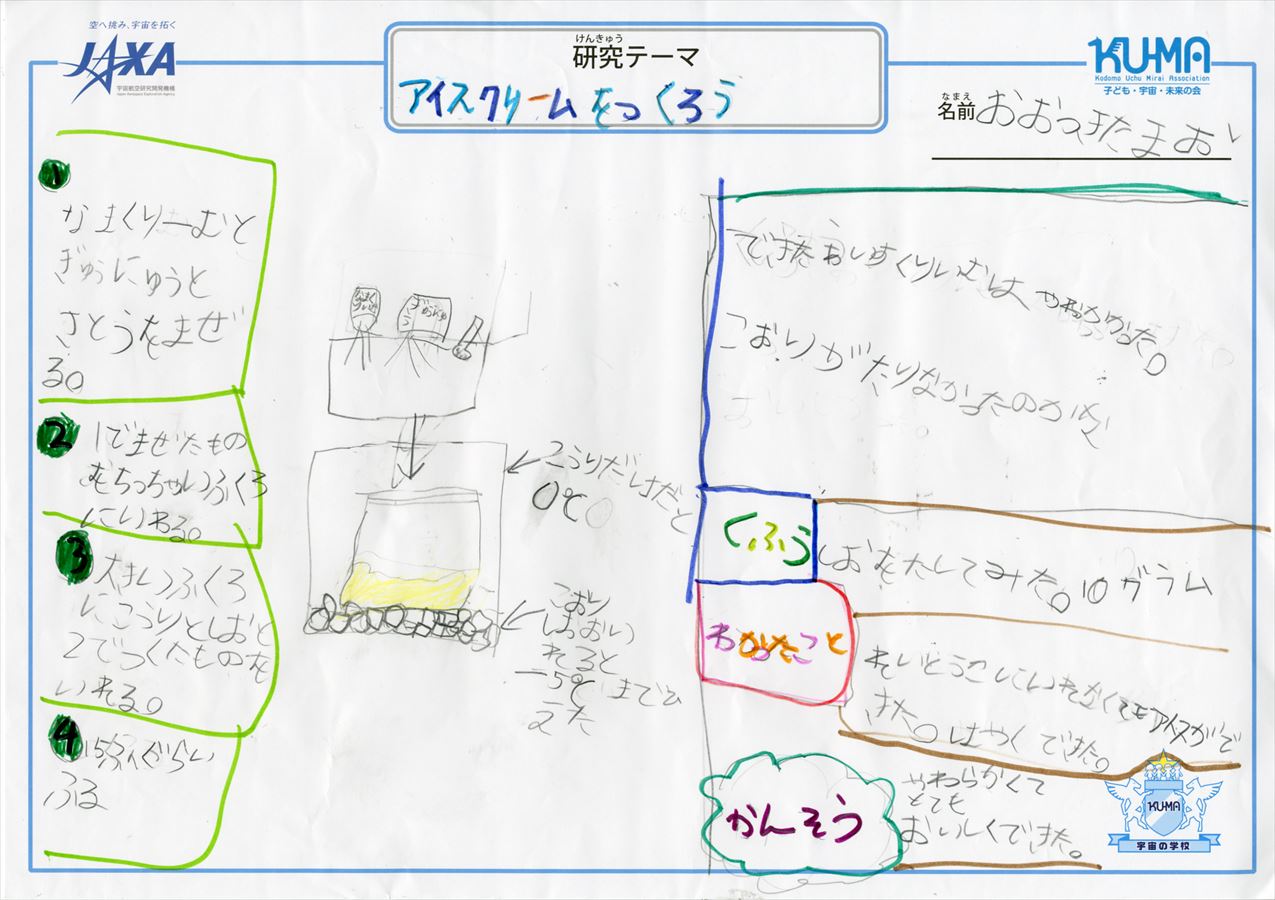 空へ挑み、宇宙を拓く
JAXA
宇宙航空研究開発機構
Japan Aerospace Exploration Agency
けんきゅう
研究テーマ
アイスクリームをつくろう
KU-MA
Kodomo Uchu Mirai Association
子ども・宇宙・未来の会
なまえ
名前
1
なまくりーむと
ぎゅうにゅうと
さとうをまぜ
る。
2
1でませたもの
をちっちゃいふくろ
にいれる。
3
大きいふくろ
にこうりとしおと
2でつくたものを
いれる。
4
15ふんぐらい
ふる
ぎゅうにゅう
こうりだけだと
0℃
こおり
しおおい
れると
-5℃までひ
えた
できたあいすくりいむは やわかかた。
こおりがたりなかったのかな
くふう
しおをたしてみた。10グラム
わかったこと
れいとうこにいれなくてもアイスがで
きた。はやくできた。
かんそう
やわらかくて
とても
おいしくできた。
KU-MA
宇宙の学校